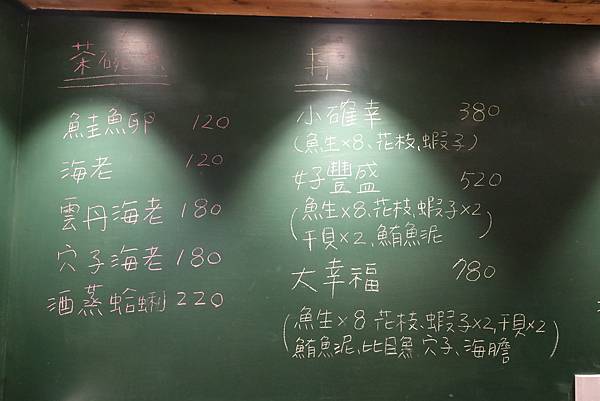 茶碗蒸
鮭魚卵 120
海老 120
雲丹海老 180
穴子海老 180
酒蒸蛤蜊 220
丼
小確幸 380
(魚生×8、花枝、蝦子)
好豐盛 520
(魚生×8、花枝、蝦子×2
干貝×2、鮪魚泥)
大幸福 780
(魚生×8 花枝、蝦子×2,干貝×2
鮪魚泥、比目魚 穴子、海膽)